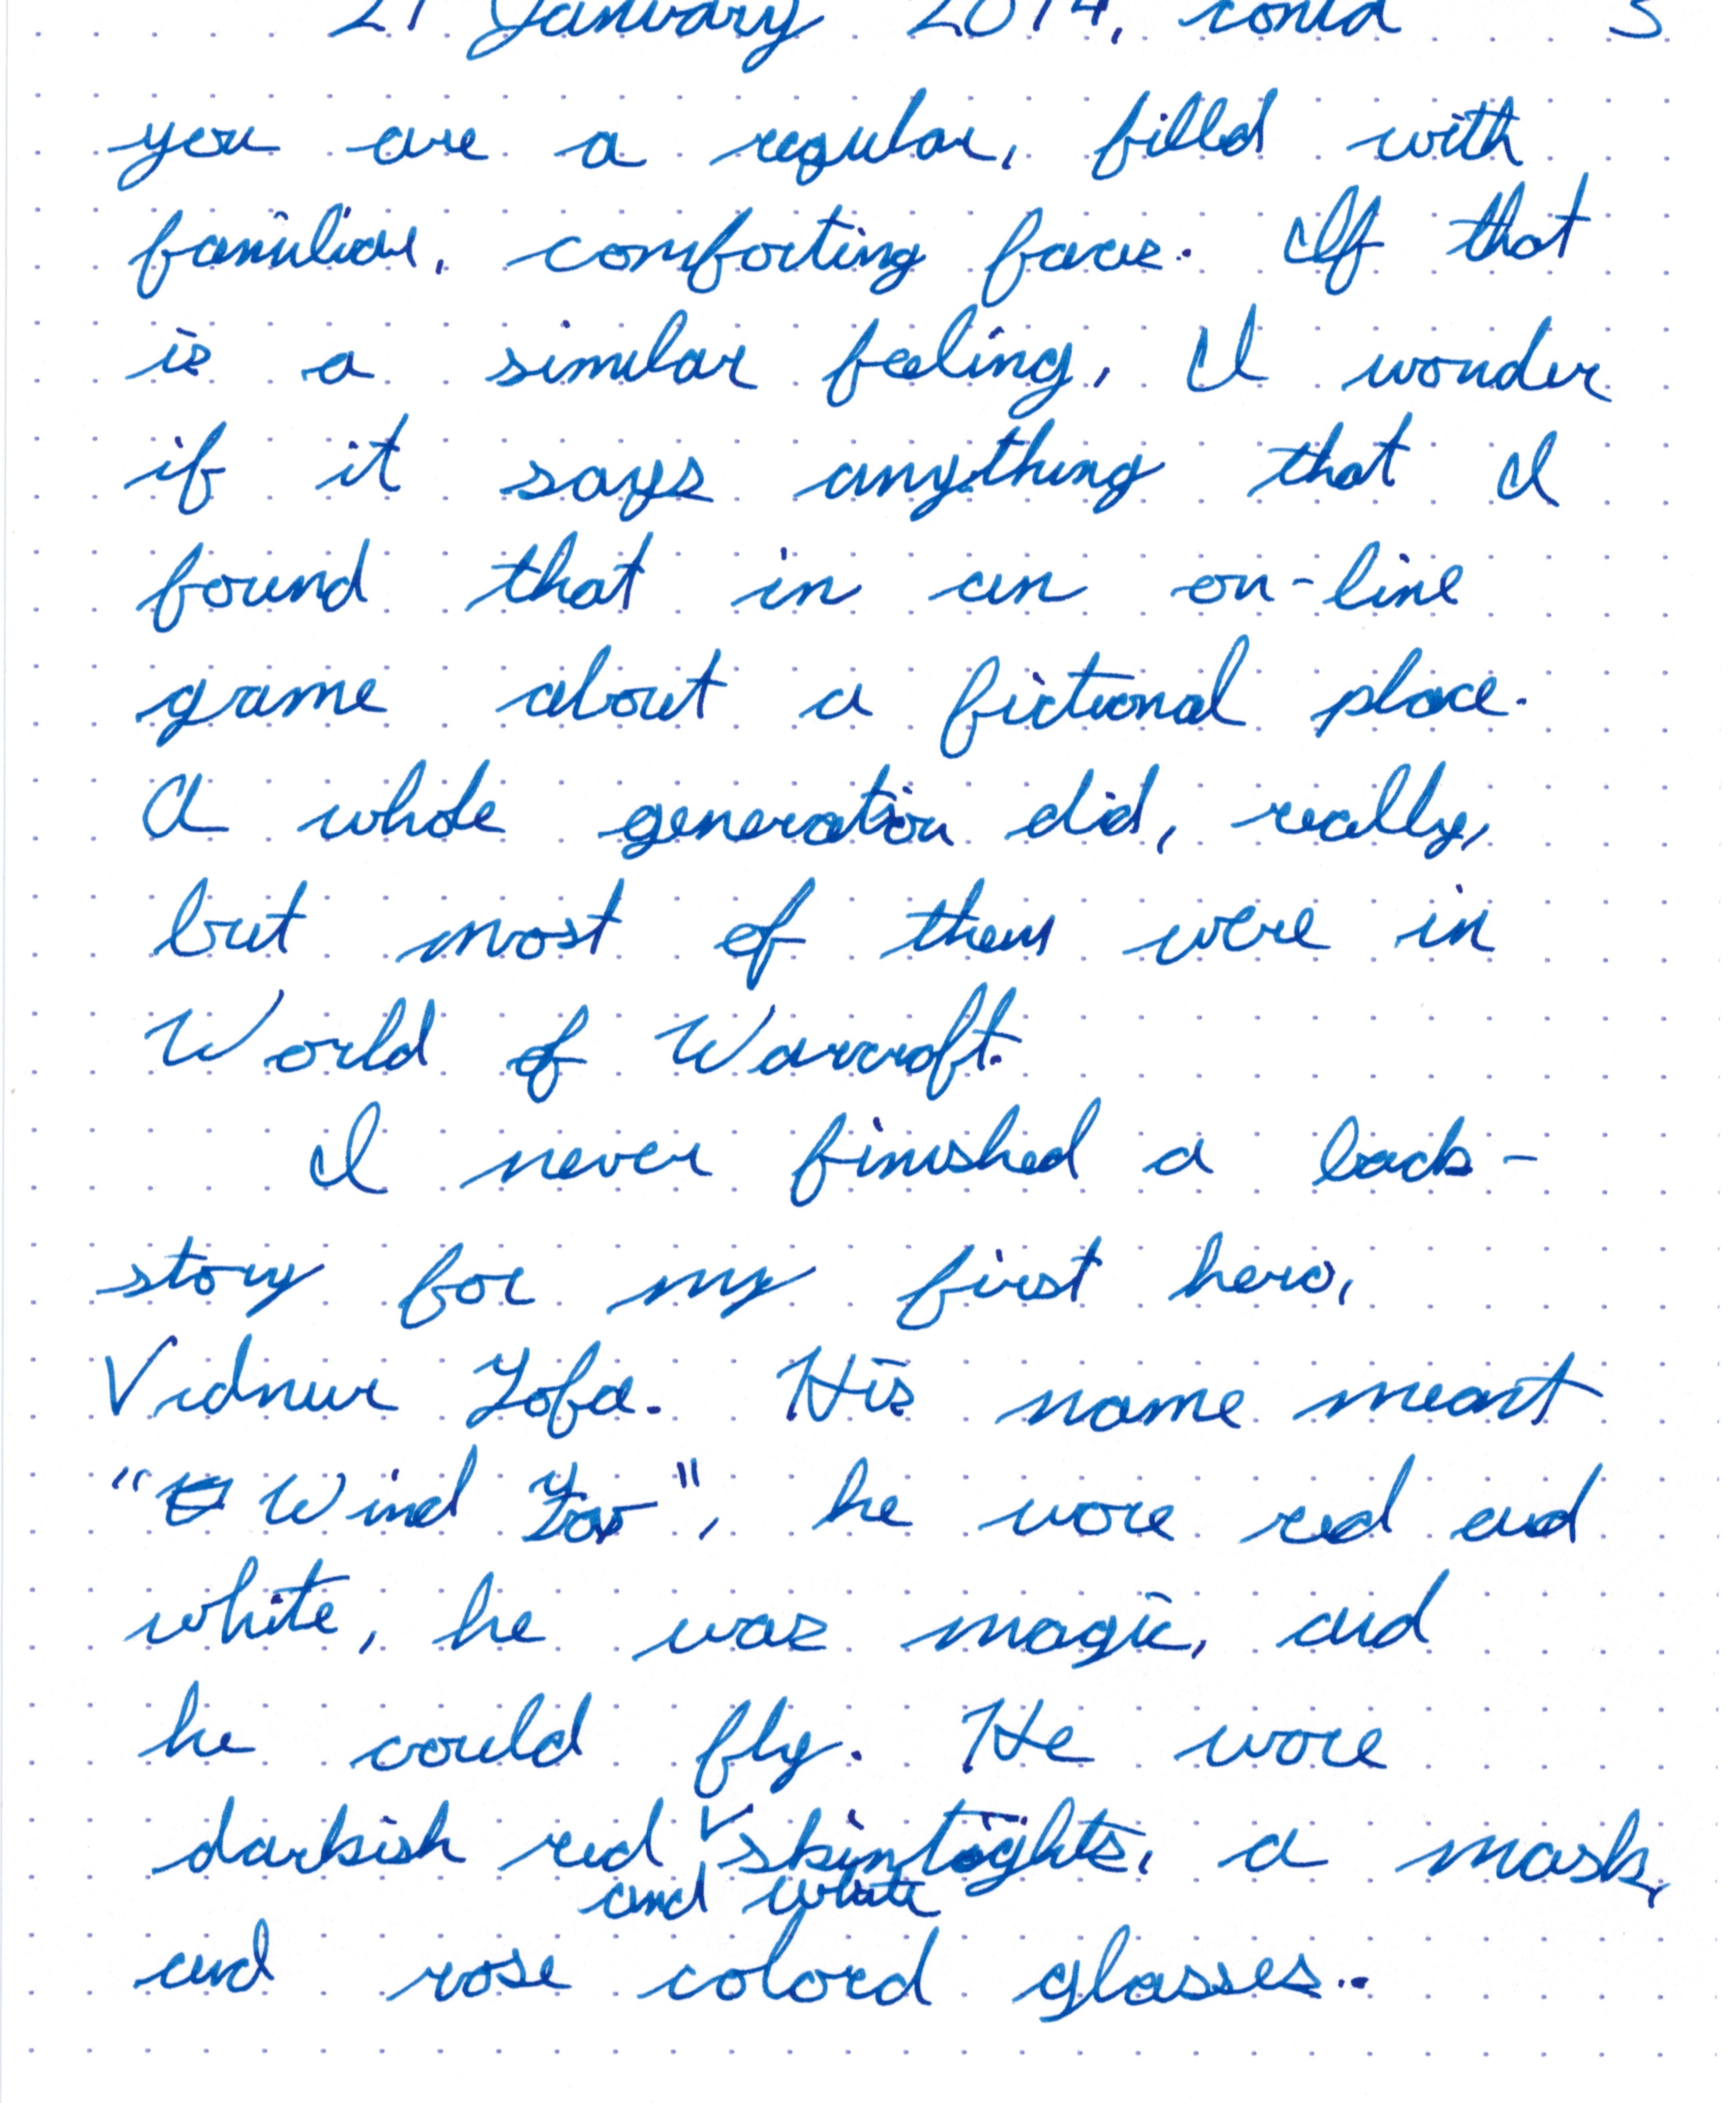 21 January 2014, contd 3
you are a regular, filled with
familiar, comforting faces. If that
is a similar feeling, I wonder
if it says anything that I
found that in an on-line
game about a fictional place.
A whole generation did, really,
but most of them were in
World of Warcraft.
I never finished a back-
story for my first hero,
Vidnur Zofa. His name meant
"Wind Fox", he wore red and
white, he was magic, and
he could fly. He wore
darkish red skintights, a mask,
and white
and rose colord glasses..